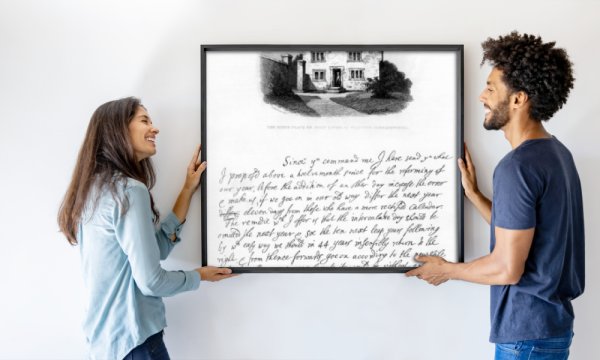 THE BIRTH PLACE OF JOHN LOCKE, AT WRINGTON SOMERSETSHIRE.
Since yu command me I have send yu what
I proposd above a twelvemonth since for the reforming of
our year, before the addition of an other day increase the error
& make us, if we goe on in our old way differ the next year
eleven days from those who have a more rectified calendar
The remedie wch I offer is that the intercalar day should be
omitted the next year & soe the ten next leap years following
by wch easy way we should in 44 years insensibly return to the
right & from thence forwards goe on according to the